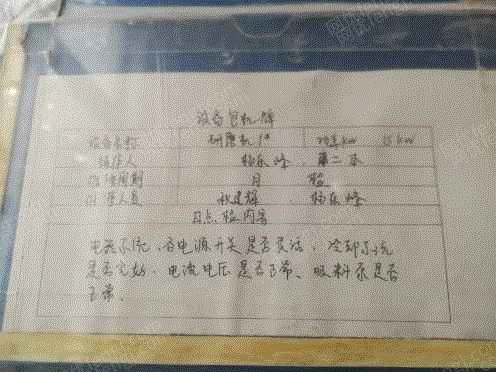 设备包机牌
设备名称 研磨机1# 功率kw 15kw
责任人 杨东峰 第二
周期 月 检
人员 杨东峰
日点检内容
电器系统,各电源开关是否灵活,冷却系统
是否完好,电流电压是否正常、吸料泵是否
正常.